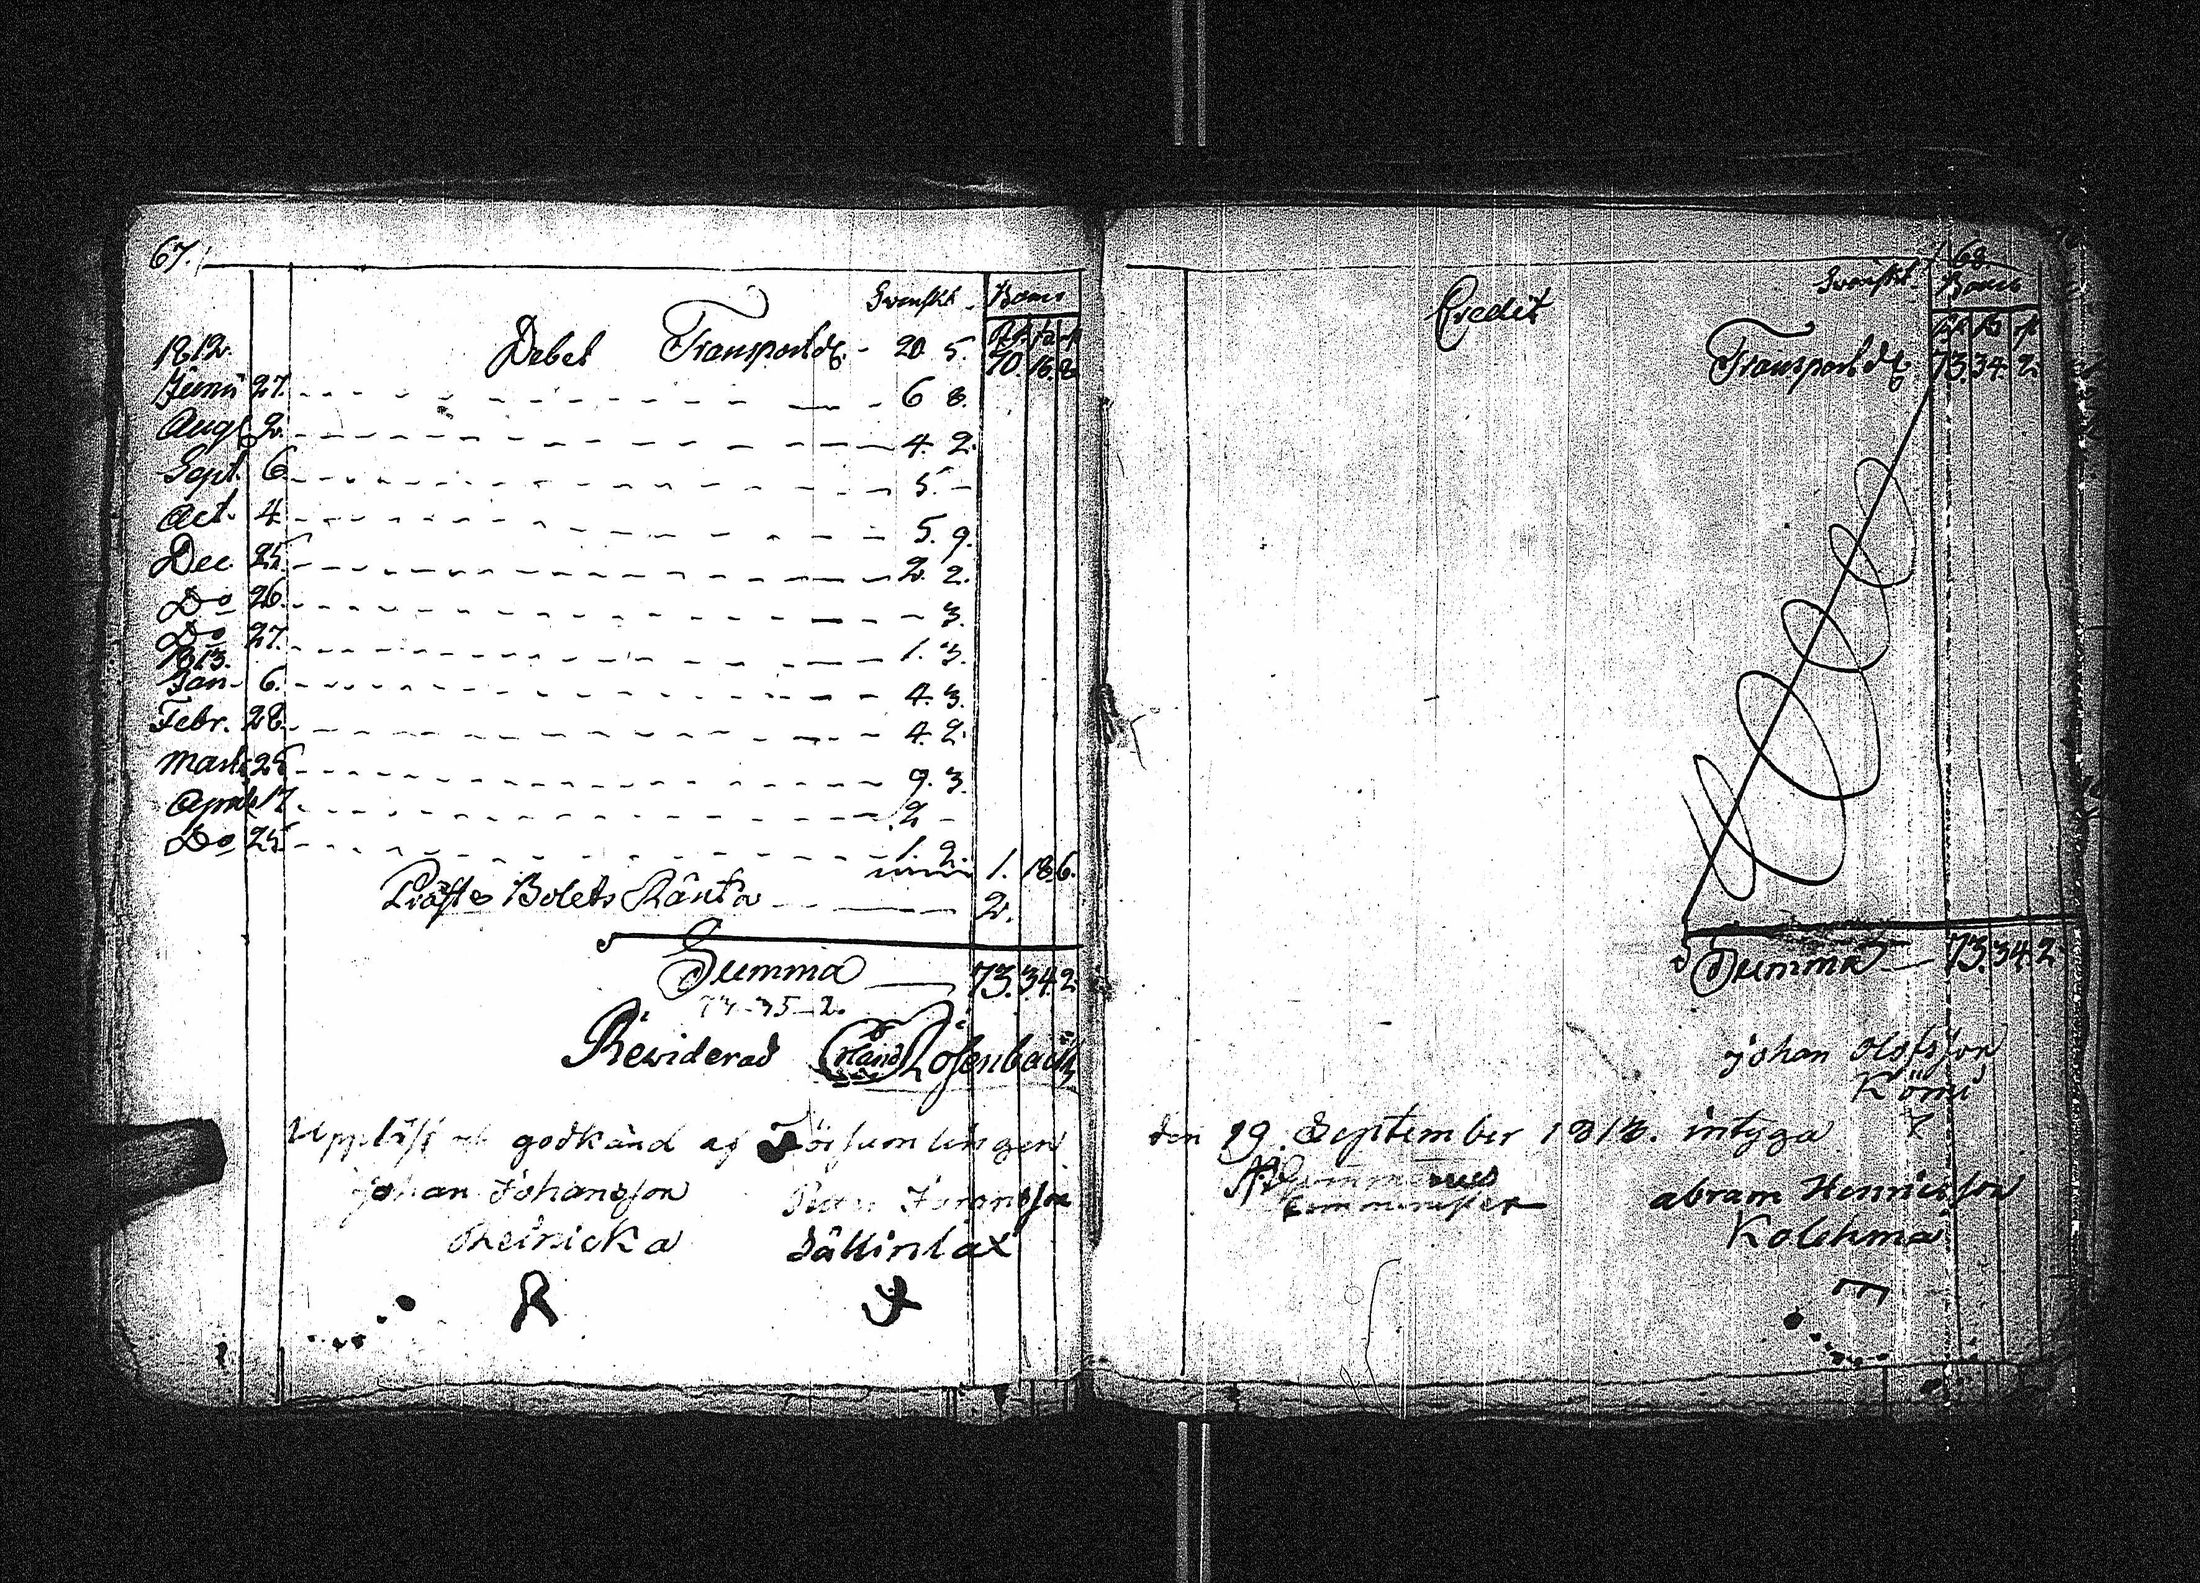 67.
Svenskt Banco
1812. Debet Transport 20 5. 70. 16. 8
Junii 27. 6 8.
Aug 2. 4. 2.
Sept. 6. 5. -
Oct. 4. 5. 9.
Dec. 25. 2. 2.
Do 26. 3.
Do 27. 1. 3.
1813.
Jan. 6. 4. 3.
Febr. 28. 4. 2.
Marti 25 9. 3.
April 17. 2 -
Do 25 1. 2. 1. 18 6.
Bolets Ränta 2.
Summa 73. 34 2
73-35-2.
Rewiderad Erland Rosenback
Uppläst och godkänd af Församlingen
Johan Johansson
Reinicka Sällinlax
R
68.
Svenskt Banco
Credit
Transport 73. 34 2
Summa 73. 34 2
Johan Olofsson
Körni
den 19 September 1813. intyga
Comminister
Abram Henricsson
Kolehma